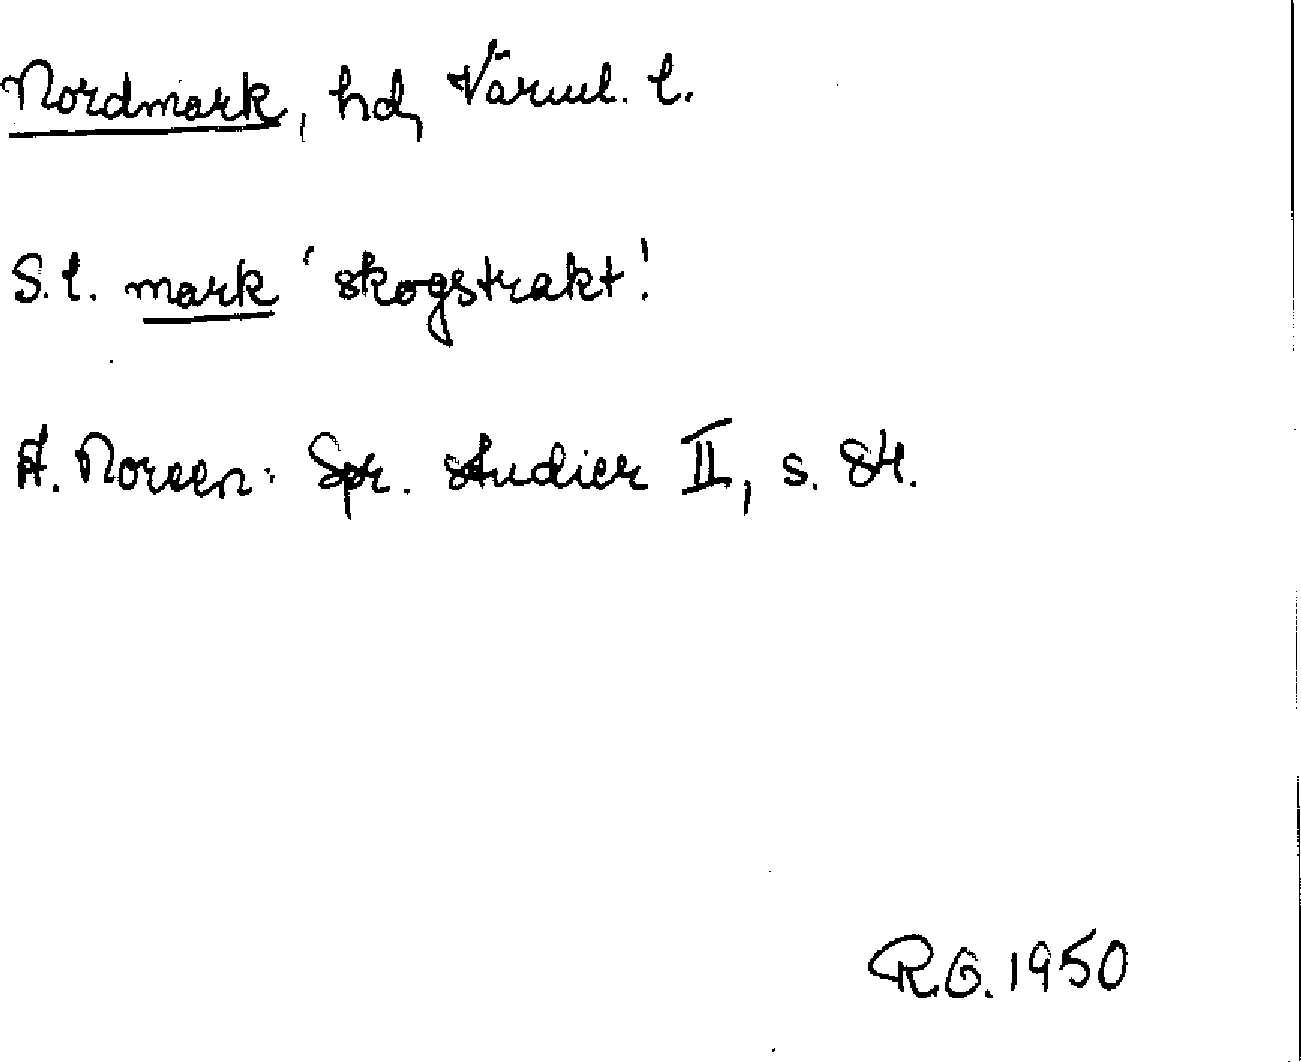 Nordmark, hd, Värml. l.
S.l. mark 'skogstrakt'.
A. Noreen: Spr. studier II, s. 84.
R.G. 1950